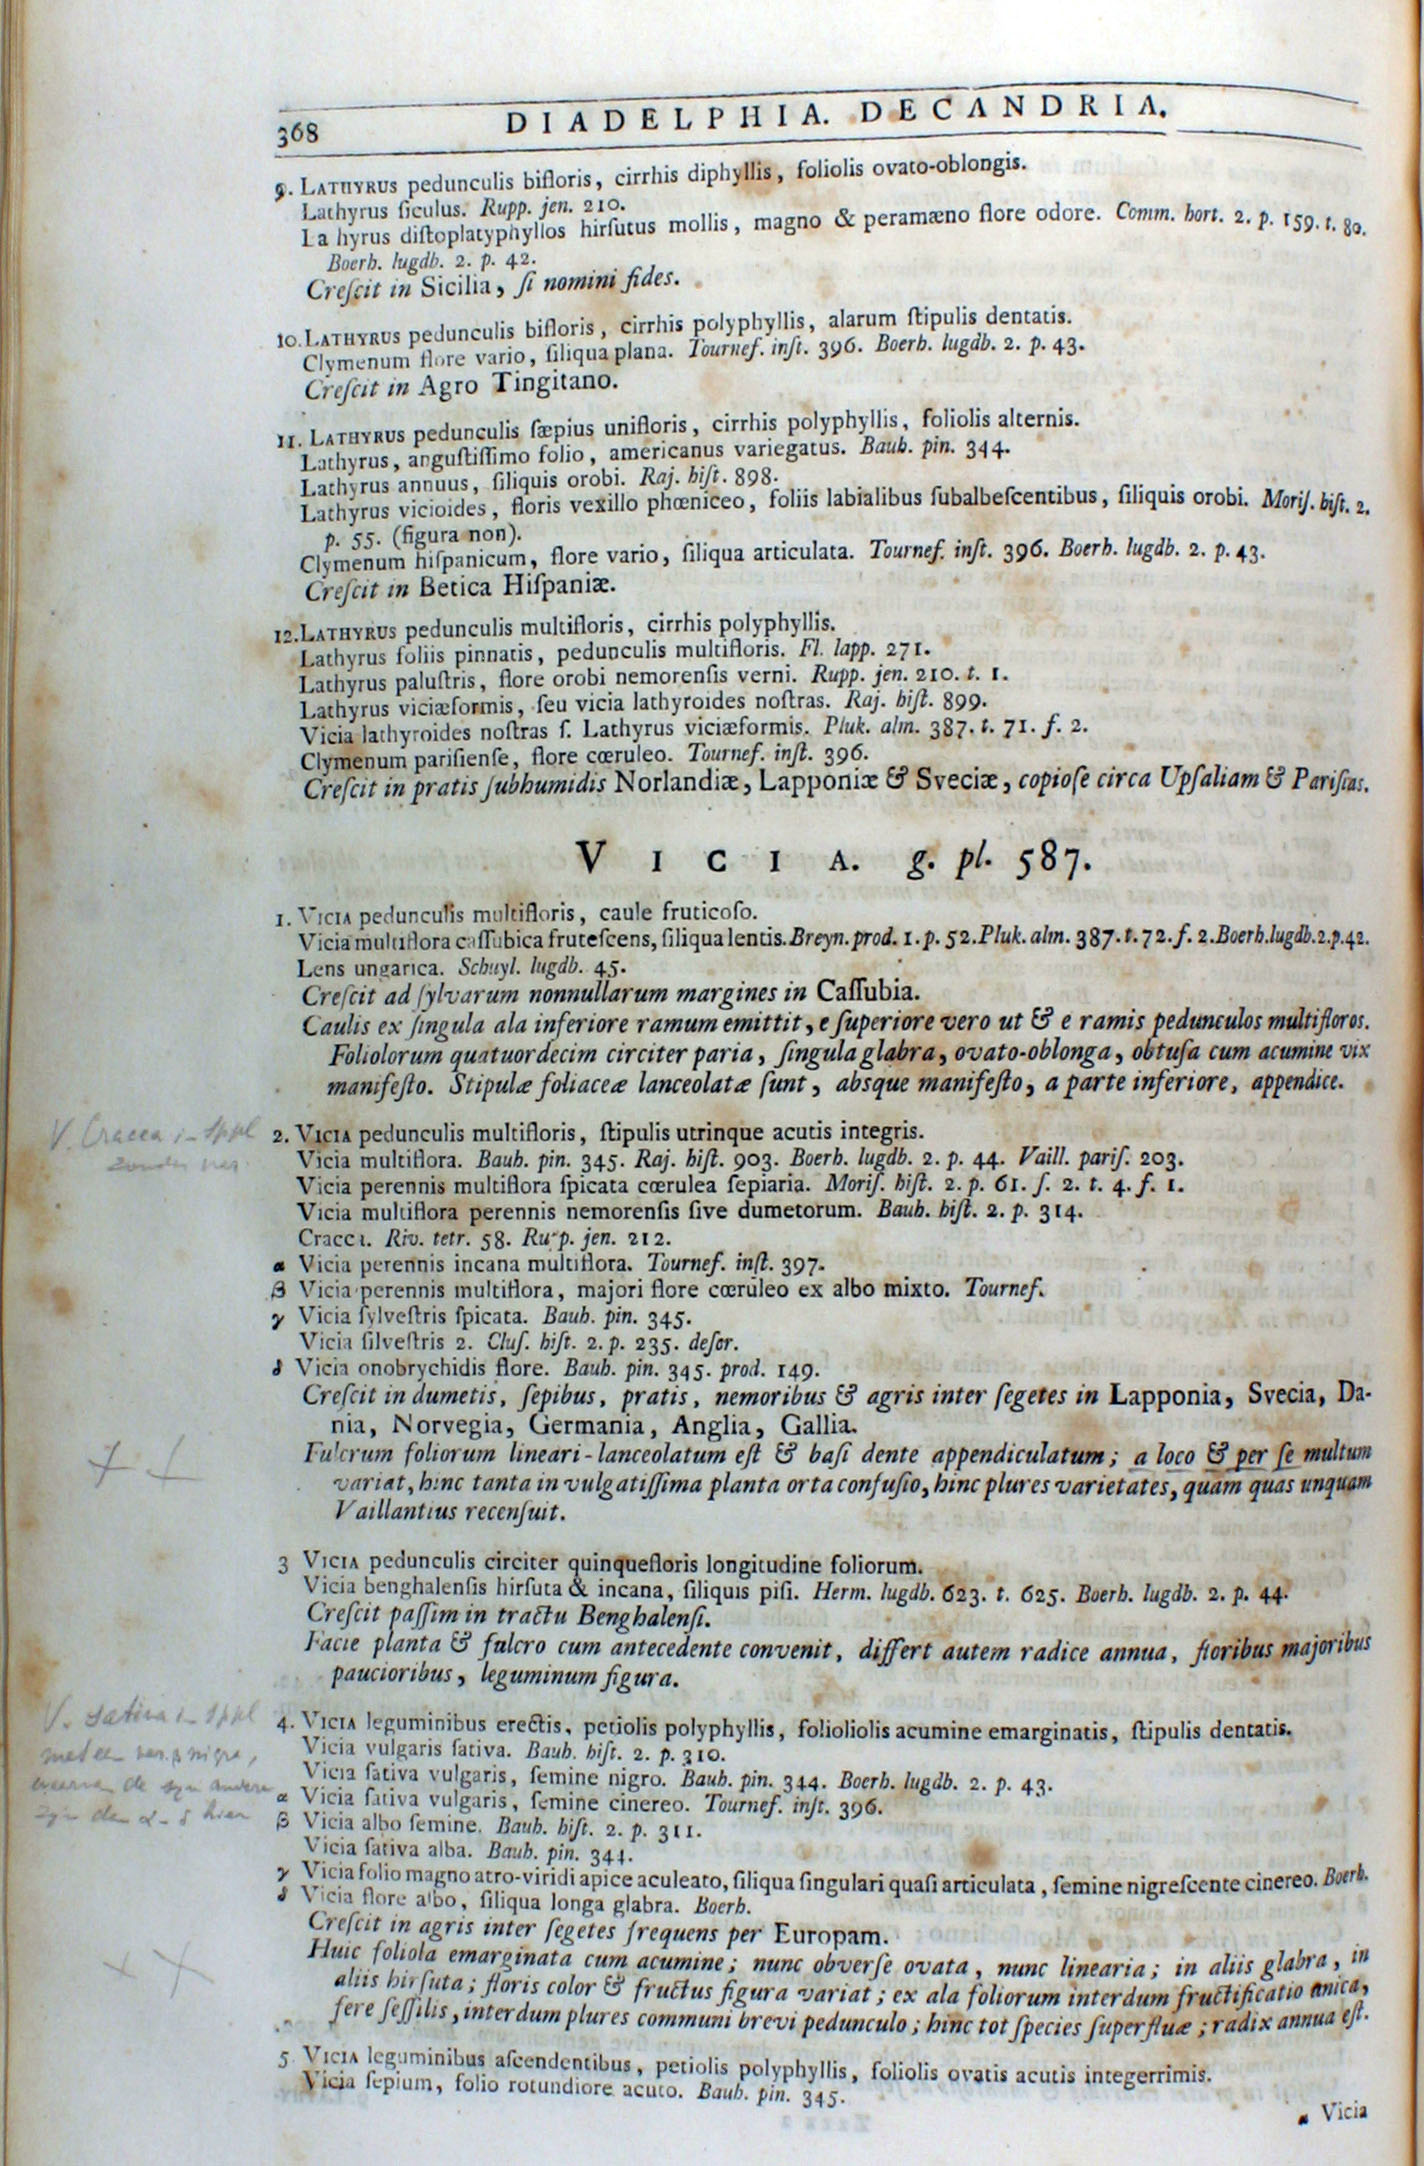 368 DIADELPHIA. DECANDRIA.
9. LATHYRUS pedunculis bifloris, cirrhis diphyllis, foliolis ovato-oblongis.
Lathyrus ſiculus. Rupp. jen. 210.
La hyrus diſtoplatyphyllos hirſutus mollis, magno & peramæno flore odore. Comm. hort. 2. p. 159. t. 80.
Boerh. lugdb. 2. p. 42.
Creſcit in Sicilia, ſi nomini fides.
10. LATHYRUS pedunculis bifloris, cirrhis polyphyllis, alarum ſtipulis dentatis.
Clymenum flore vario, ſiliqua plana. Tournef. inſt. 396. Boerh. lugdb. 2. p. 43.
Creſcit in Agro Tingitano.
11. LATHYRUS pedunculis ſæpius unifloris, cirrhis polyphyllis, foliolis alternis.
Lathyrus, anguſtiſſimo folio, americanus variegatus. Bauh. pin. 344.
Lathyrus annuus, ſiliquis orobi. Raj. hiſt. 898.
Lathyrus vicioides, floris vexillo phœniceo, foliis labialibus ſubalbeſcentibus, ſiliquis orobi. Moriſ. hiſt. 2.
p. 55. (figura non).
Clymenum hiſpanicum, flore vario, ſiliqua articulata. Tournef. inſt. 396. Boerh. lugdb. 2. p. 43.
Creſcit in Betica Hiſpaniæ.
12. LATHYRUS pedunculis multifloris, cirrhis polyphyllis.
Lathyrus foliis pinnatis, pedunculis multifloris. Fl. lapp. 271.
Lathyrus paluſtris, flore orobi nemorenſis verni. Rupp. jen. 210. t. 1.
Lathyrus viciæformis, ſeu vicia lathyroides noſtras. Raj. hiſt. 899.
Vicia lathyroides noſtras ſ. Lathyrus viciæformis. Pluk. alm. 387. t. 71. f. 2.
Clymenum pariſienſe, flore cœruleo. Tournef. inſt. 396.
Creſcit in pratis ſubhumidis Norlandiæ, Lapponiæ & Sveciæ, copioſe circa Upſaliam & Pariſias.
VICIA. g. pl. 587.
1. VICIA pedunculis multifloris, caule fruticoſo.
Vicia multiflora caſſubica fruteſcens, ſiliqua lentis. Breyn. prod. 1. p. 52. Pluk. alm. 387. t. 72. f. 2. Boerh. lugdb. 2. p. 42.
Lens ungarica. Schuyl. lugdb. 45.
Creſcit ad ſylvarum nonnullarum margines in Caſſubia.
Caulis ex ſingula ala inferiore ramum emittit, e ſuperiore vero ut & e ramis pedunculos multifloros.
Foliolorum quatuordecim circiter paria, ſingula glabra, ovato-oblonga, obtuſa cum acumine vix
manifeſto. Stipulæ foliaceæ lanceolatæ ſunt, absque manifeſto, a parte inferiore, appendice.
V. Cracca
2. VICIA pedunculis multifloris, ſtipulis utrinque acutis integris.
Vicia multiflora. Bauh. pin. 345. Raj. hiſt. 903. Boerh. lugdb. 2. p. 44. Vaill. pariſ. 203.
Vicia perennis multiflora ſpicata cœrulea ſepiaria. Moriſ. hiſt. 2. p. 61. ſ. 2. t. 4. f. 1.
Vicia multiflora perennis nemorenſis ſive dumetorum. Bauh. hiſt. 2. p. 314.
Cracca. Riv. tetr. 58. Rupp. jen. 212.
α Vicia perennis incana multiflora. Tournef. inſt. 397.
β Vicia perennis multiflora, majori flore cœruleo ex albo mixto. Tournef.
γ Vicia ſylveſtris ſpicata. Bauh. pin. 345.
Vicia ſilveſtris 2. Cluſ. hiſt. 2. p. 235. deſcr.
δ Vicia onobrychidis flore. Bauh. pin. 345. prod. 149.
Creſcit in dumetis, ſepibus, pratis, nemoribus & agris inter ſegetes in Lapponia, Svecia, Da-
nia, Norvegia, Germania, Anglia, Gallia.
Fulcrum foliorum lineari-lanceolatum eſt & baſi dente appendiculatum; a loco & per ſe multum
variat, hinc tanta in vulgatiſſima planta orta confuſio, hinc plures varietates, quam quas unquam
Vaillantius recenſuit.
3 VICIA pedunculis circiter quinquefloris longitudine foliorum.
Vicia benghalenſis hirſuta & incana, ſiliquis piſi. Herm. lugdb. 623. t. 625. Boerh. lugdb. 2. p. 44.
Creſcit paſſim in tractu Benghalenſi.
Facie planta & fulcro cum antecedente convenit, differt autem radice annua, floribus majoribus
paucioribus, leguminum figura.
V. sativa
4. VICIA leguminibus erectis, petiolis polyphyllis, folioliolis acumine emarginatis, ſtipulis dentatis.
Vicia vulgaris ſativa. Bauh. hiſt. 2. p. 310.
Vicia ſativa vulgaris, ſemine nigro. Bauh. pin. 344. Boerh. lugdb. 2. p. 43.
α Vicia ſativa vulgaris, ſemine cinereo. Tournef. inſt. 396.
β Vicia albo ſemine. Bauh. hiſt. 2. p. 311.
Vicia ſativa alba. Bauh. pin. 344.
γ Vicia folio magno atro-viridi apice aculeato, ſiliqua ſingulari quaſi articulata, ſemine nigreſcente cinereo. Boerh.
δ Vicia flore albo, ſiliqua longa glabra. Boerh.
Creſcit in agris inter ſegetes frequens per Europam.
Huic foliola emarginata cum acumine; nunc obverſe ovata, nunc linearia; in aliis glabra, in
aliis hirſuta; floris color & fructus figura variat; ex ala foliorum interdum fructificatio unica,
fere ſeſſilis, interdum plures communi brevi pedunculo; hinc tot ſpecies ſuperfluæ; radix annua eſt.
5 VICIA leguminibus aſcendentibus, petiolis polyphyllis, foliolis ovatis acutis integerrimis.
Vicia ſepium, folio rotundiore acuto. Bauh. pin. 345.
α Vicia